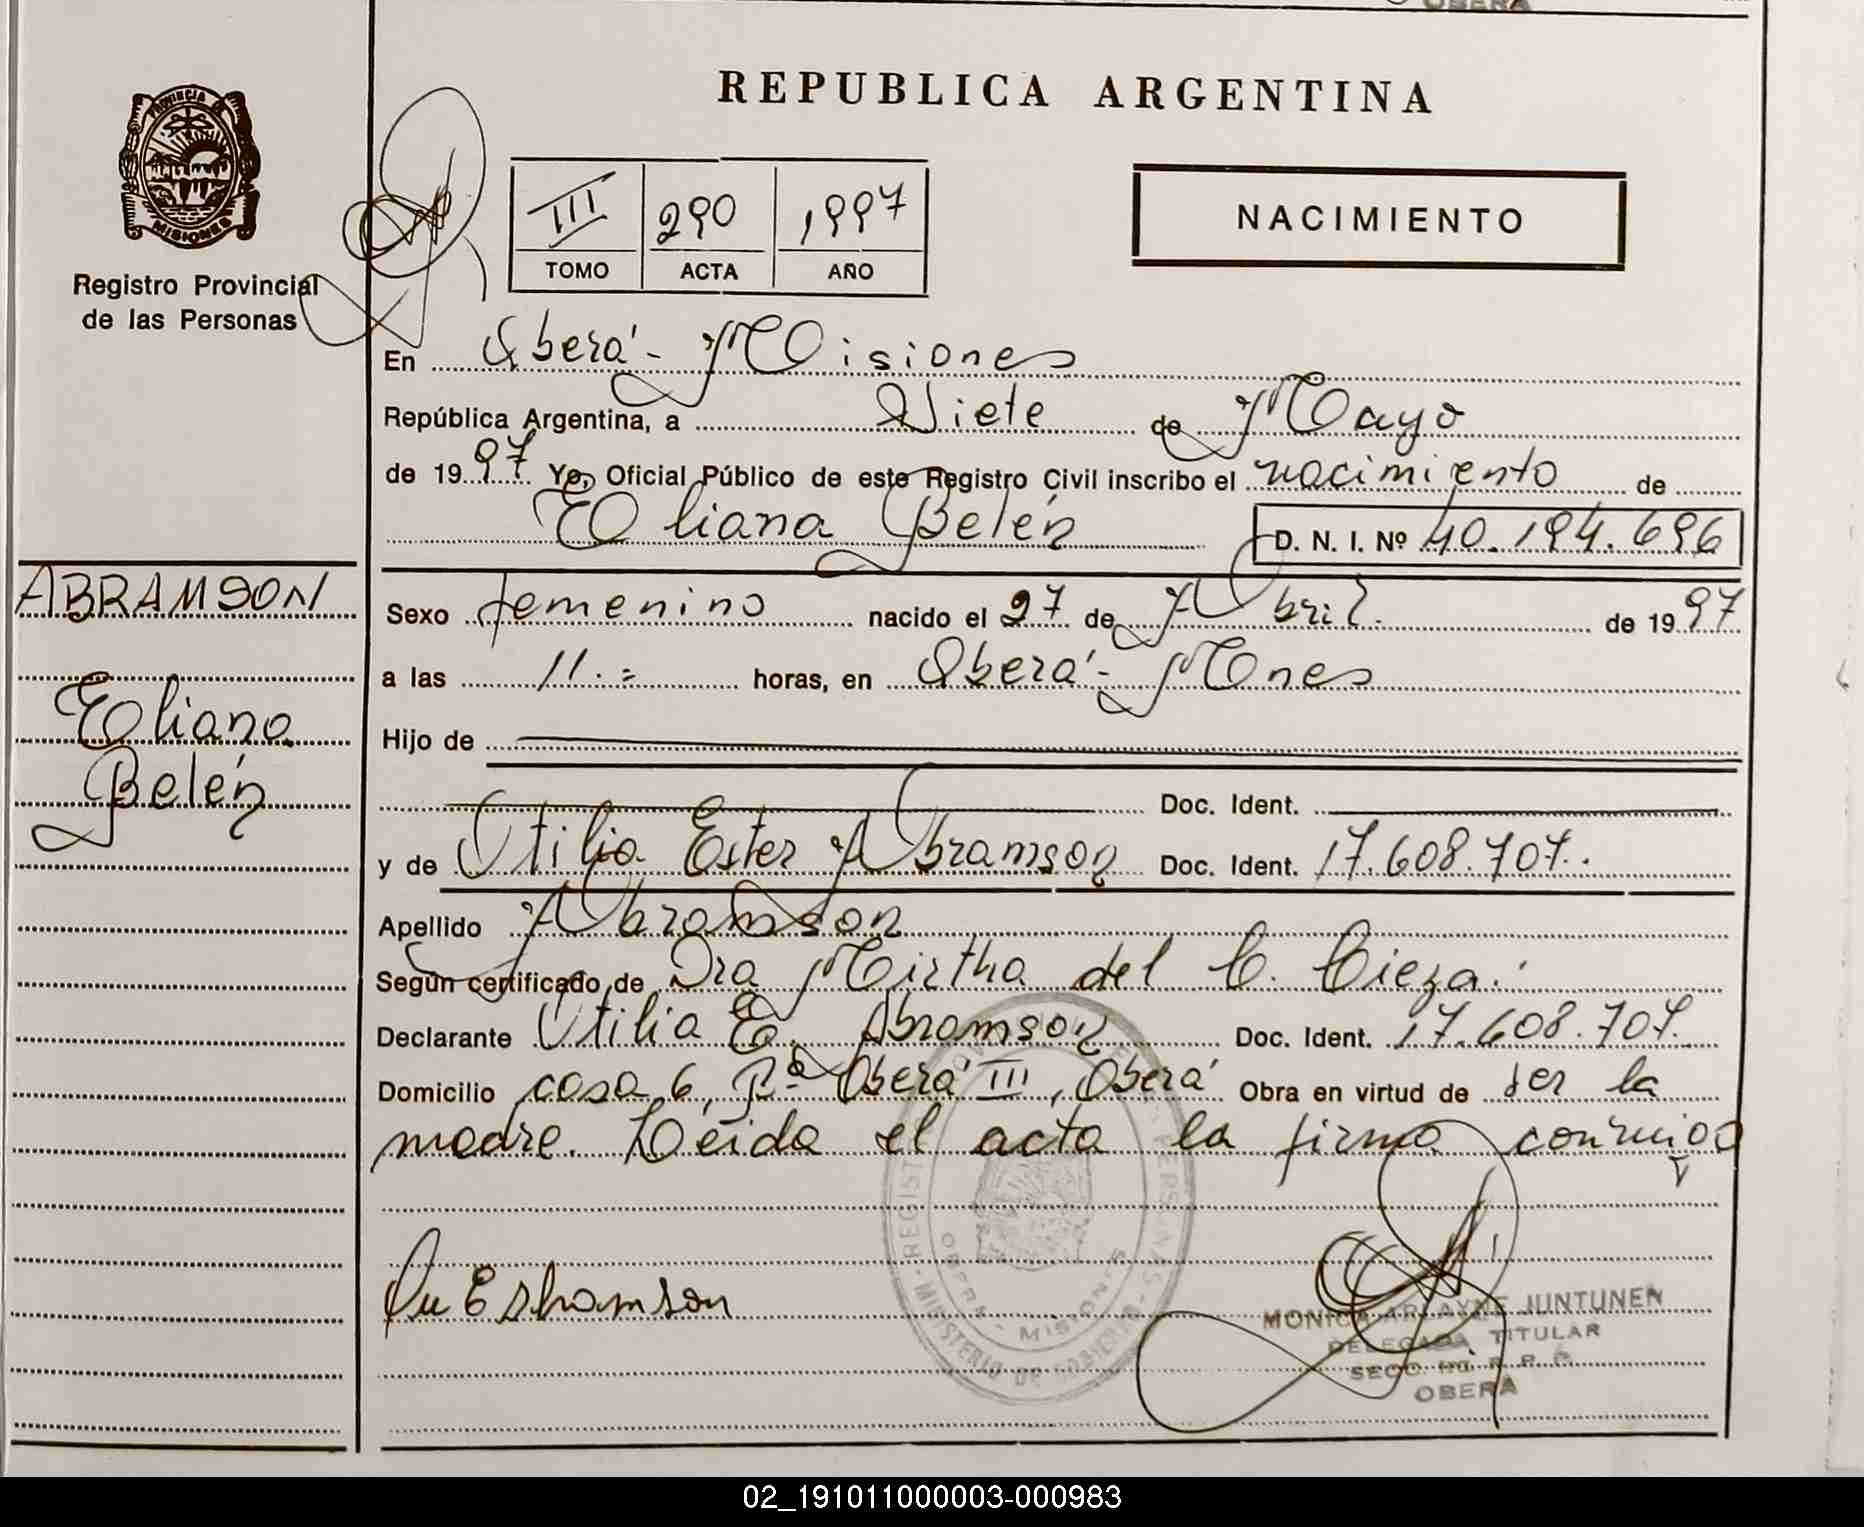 OBERA
REPUBLICA ARGENTINA
PROVINCIA DE
MISIONES
Registro Provincial
de las Personas
III 290 1997
TOMO ACTA AÑO
NACIMIENTO
En Oberá - Misiones
República Argentina, a Siete de Mayo
de 1997. Yo, Oficial Público de este Registro Civil inscribo el nacimiento de
Eliana Belén D. N. I. Nº 40.194.696
ABRAMSON
Eliana
Belén
Sexo femenino nacido el 27 de Abril. de 1997
a las 11.= horas, en Oberá - Mnes
Hijo de
Doc. Ident.
y de Otilia Ester Abramson Doc. Ident. 17.608.707.
Apellido Abramson
Según certificado de Dra Mirtha del C. Cieza.
Declarante Otilia E. Abramson Doc. Ident. 17.608.707.
Domicilio casa 6, Bº Oberá III, Oberá Obra en virtud de ser la
madre. Leída el acta la firma conmigo
OBERA - MISIONES
MINISTERIO DE GOBIERNO
MONICA ARLAYNE JUNTUNEN
DELEGADA TITULAR
OBERA
02_191011000003-000983